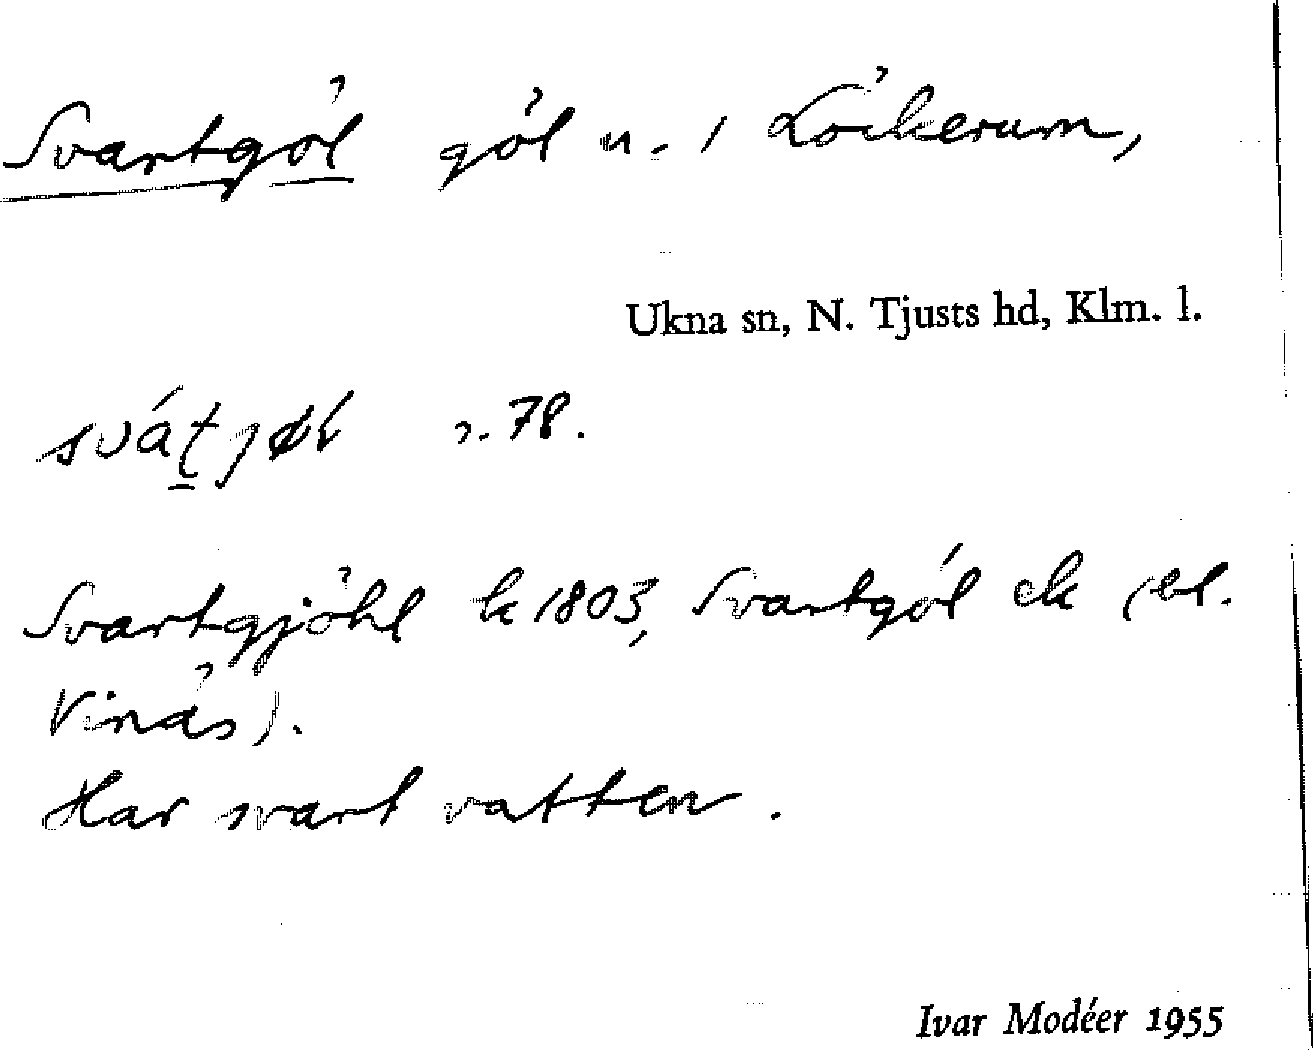 Svartgöl göl n. i Löckerum,
Ukna sn, N. Tjusts hd, Klm. l.
78.
Svartgjöhl k 1803, Svartgöl ek (bl.
Vinäs).
Har svart vatten.
Ivar Modéer 1955